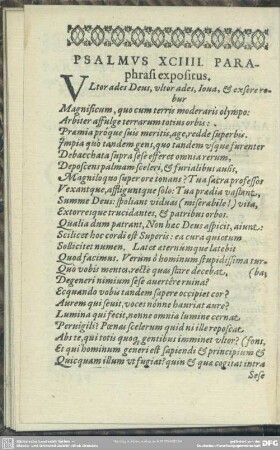 PSALMVS XCIIII. PARA-
phrasi expositus.
VLtor ades Deus, vltor ades, Ioua, & exsere ro-
bur
Magnificum, quo cum terris moderaris olympo:
Arbiter affulge terrarum totius orbis:
Præmia próque suis meritis, age, redde superbis.
Impia quò tandem gens, quo tandem vsque furenter
Debacchata supra sese efferet omnia rerum,
Deposcens palmam sceleri, & furialibus ausis,
Magniloquo super ore tonans? Tua sacra professos
Vexantque, affliguntque solo: Tua prædia vastant,
Summe Deus: spoliant viduas (miserabile!) vita,
Extorresque trucidantes, & patribus orbos.
Qualia dum patrant, Non hac Deus aspicit, aiunt:
Scilicet hoc cordi est Superis: ea cura quietum
Sollicitet numen, Latet æternumque latebit
Quod facimus. Verùm ô hominum stupidissima tur-
Quo vobis mentes, rectè quæ stare decebat, (ba,
Degeneri nimium sese auertêre ruina?
Ecquando vobis tandem sapere occipiet cor?
Aurem qui seuit, voces nónne hauriat aure?
Lumina qui fecit, nonne omnia lumine cernat
Peruigili? Pœnas scelerum quid ni ille reposcat
Abs te, qui totis quoq, gentibus imminet vltor? (fons,
Et qui hominum generi est sapiendi & principium &
Quicquam illum vt fugiat? quin & quæ cogitat intra
Sese